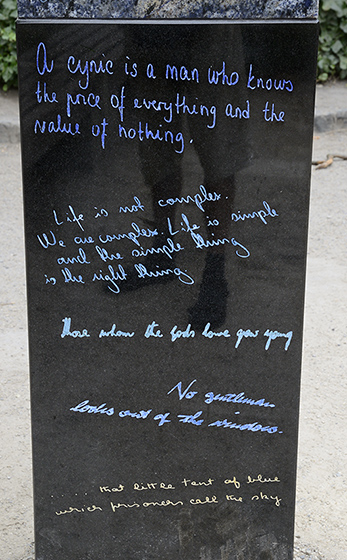 A cynic is a man who knows
the price of everything and the
value of nothing.
Life is not complex.
We are complex. Life is simple
and the simple thing
is the right thing.
Those whom the Gods love grow young
No gentleman
looks out of the window.
..... that little tent of blue
which prisoners call the sky